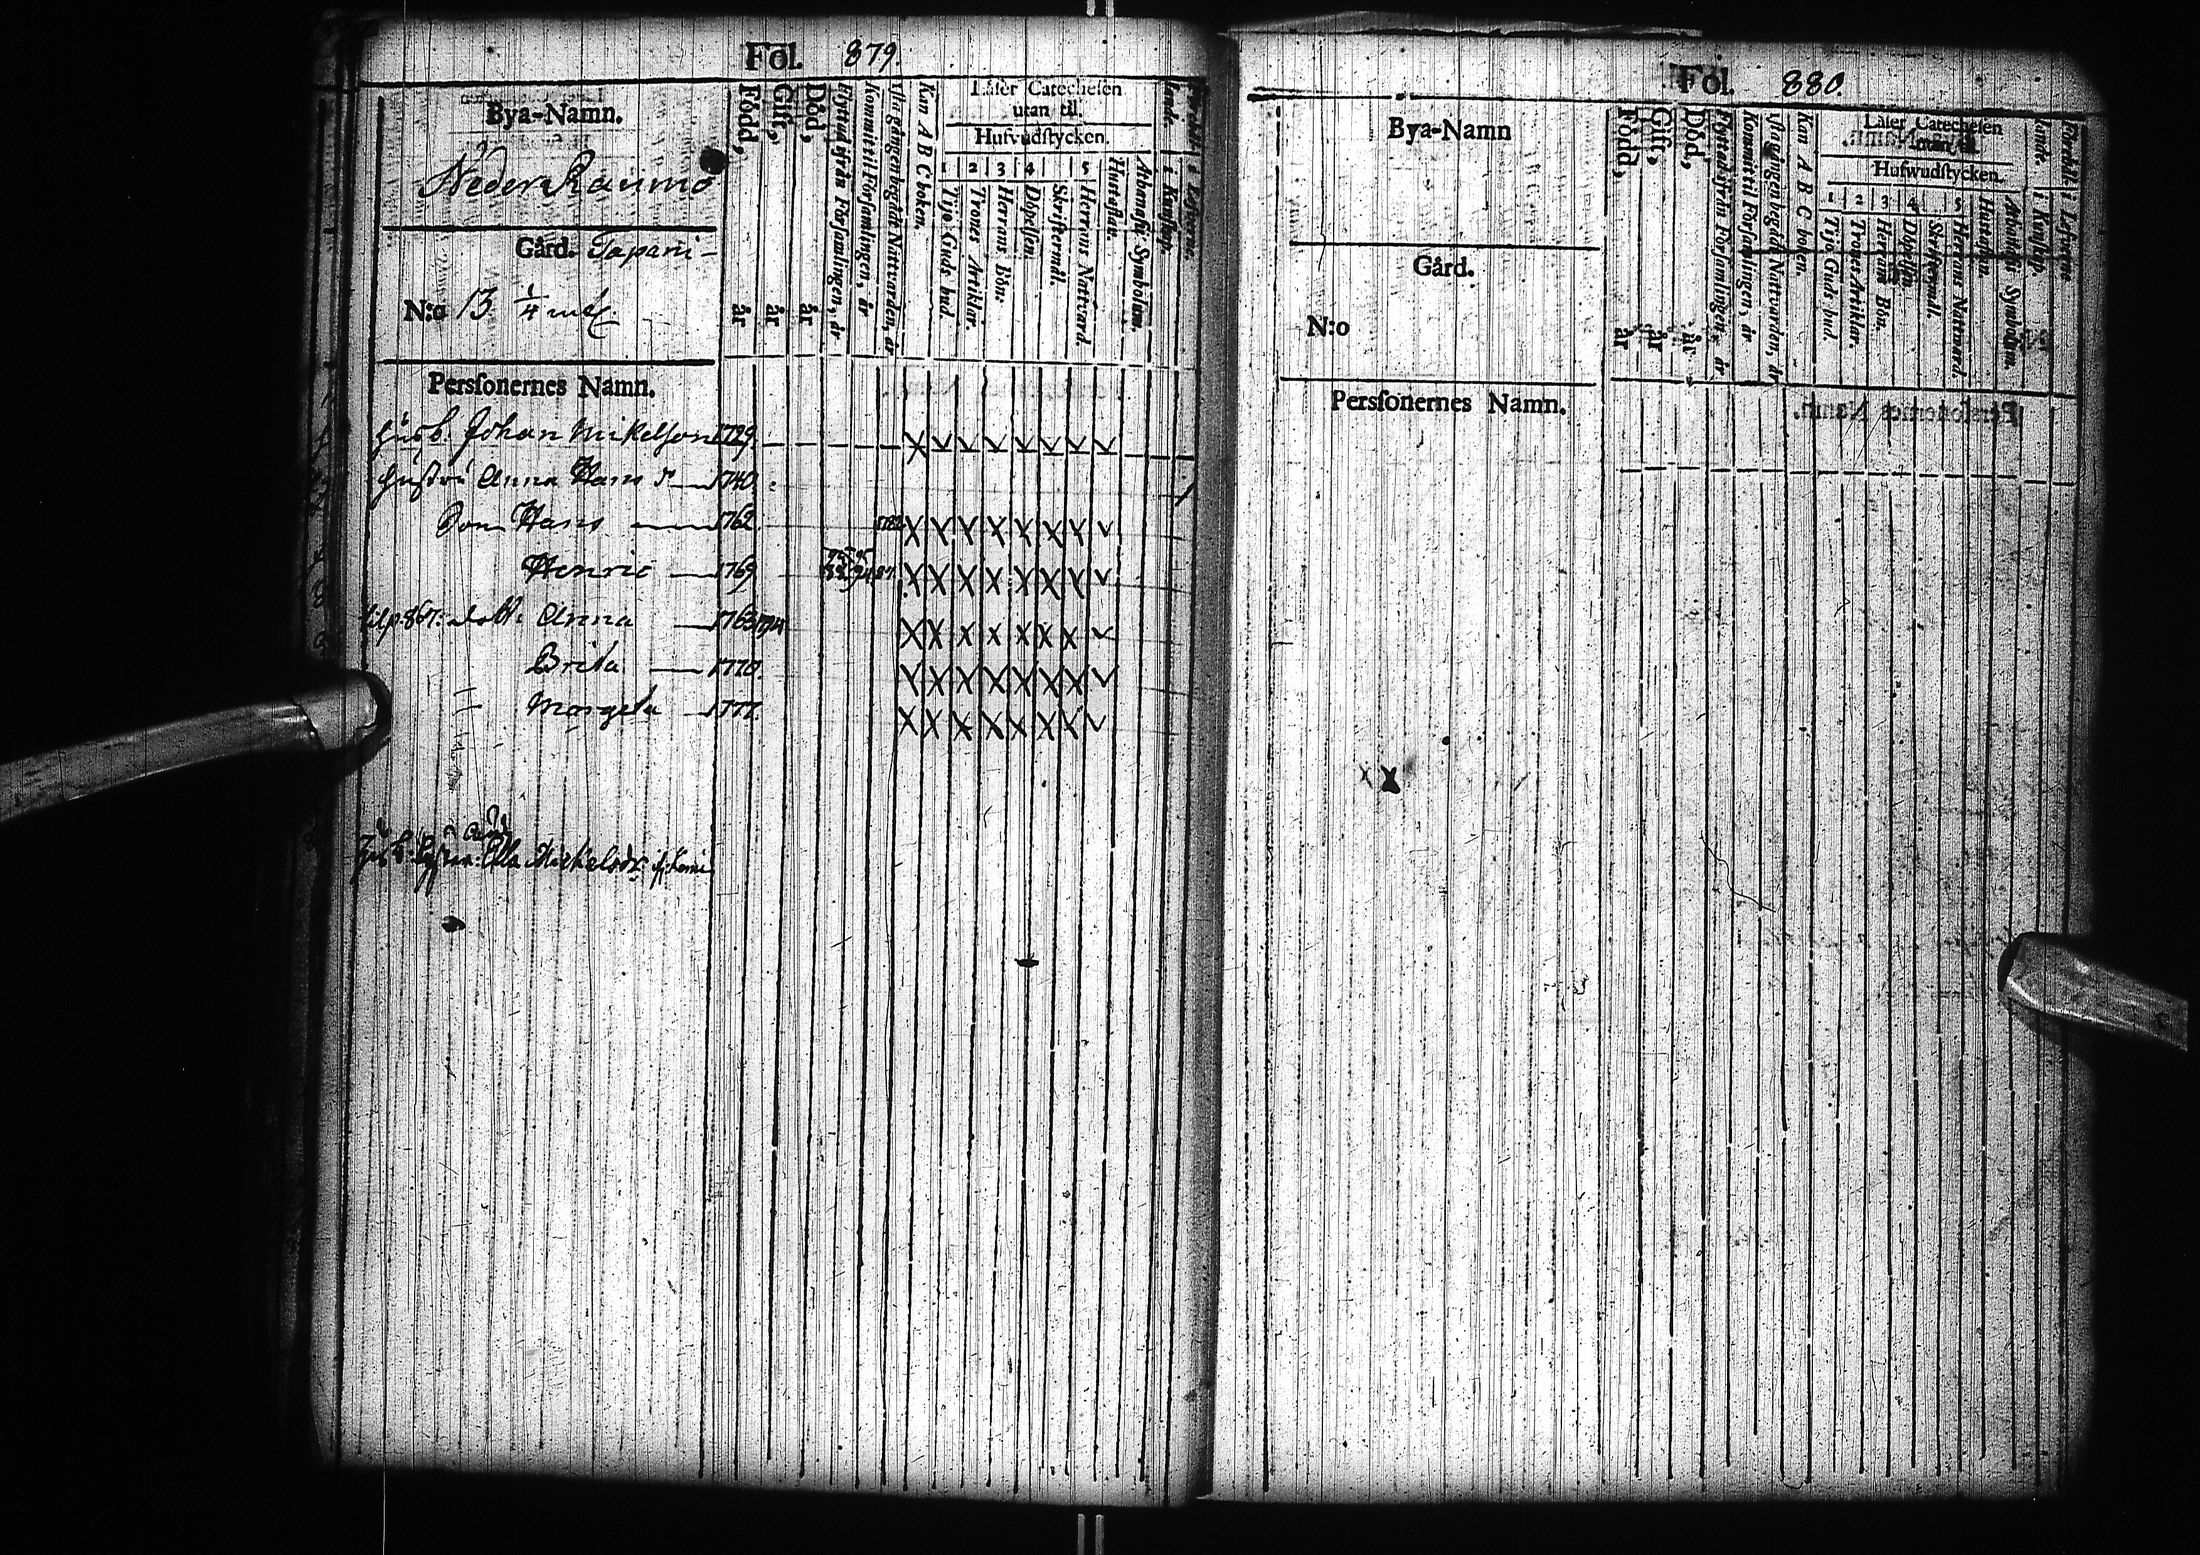 Fol. 879.
Bya-Namn.
Neder Raumo
Gård. Tapani-
N:o 13 1/4 mtl
Född, år
Gift, år
Död, år
Flyttad ifrån Församlingen, år
Kommit til Församlingen, år
Första gången begådt Nattvarden, år
Kan A B C boken.
Läser Catechesen
utan til.
Hufvudstycken.
1 2 3 4 5
Tijo Guds bud.
Trones Artiklar.
Herrans Bön.
Döpelsen
Skriftermål.
Herrans Nattvard.
Hustaflan.
Athanasii Symbolum.
i Kunskap.
i Lefverne.
Persſonernes Namn.
husb. Johan Mikelson 1729.
hustru Anna Hans d 1740.
Son Hans 1762. 1782
Henric 1769 87.
dott: Anna 1763
Brita 1770.
Margeta 1777.
Ella Michelsdr
Fol. 880.
Bya-Namn
Gård.
N:o
Född, år
Gift, år
Död, år
Flyttad ifrån Församlingen, år
Kommit til Församlingen, år
Första gången begådt Nattvarden, år
Kan A B C boken.
Läser Catechesen
utan til.
Hufwudstycken.
1 2 3 4 5
Tijo Guds bud.
Trones Artiklar.
Herrans Bön.
Döpelsen
Skriftermål.
Herrans Nattward.
Hustaflan.
Athanasii Symbolum.
i Kunskap.
i Lefverne
Persſonernes Namn.